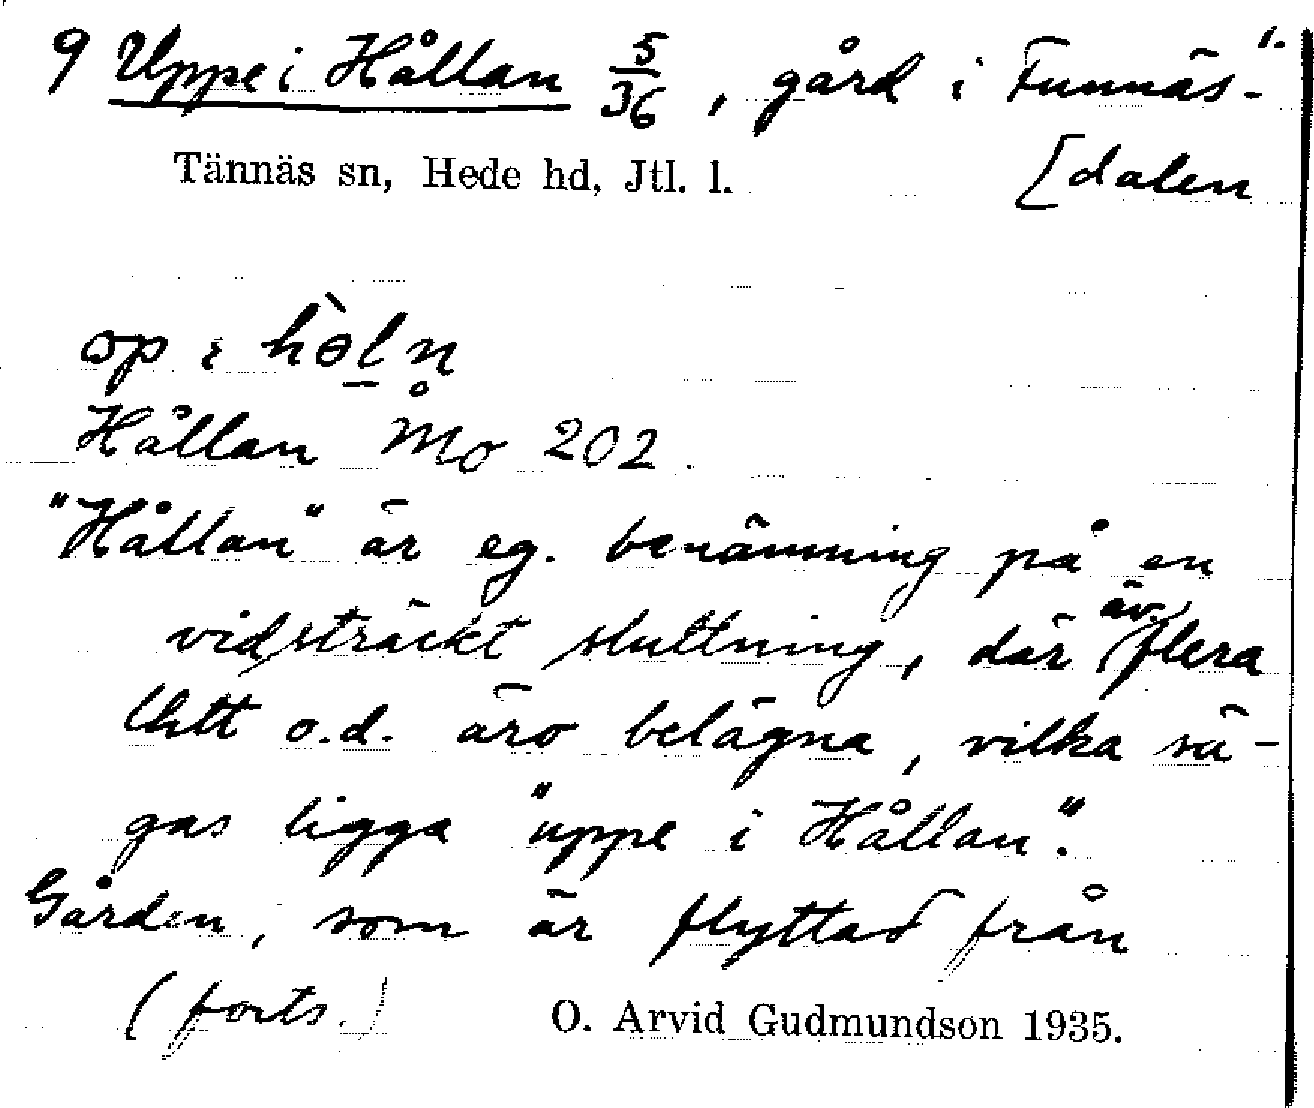 9 Uppe i Hållan 5/36, gård i Funnäs- 1.
Tännäs sn, Hede hd, Jtl. l. [dalen
Hållan Mo 202.
"Hållan" är eg. benämning på en
vidsträckt sluttning, där äv. flera
lhtt o.d. äro belägna, vilka sä-
gas ligga "uppe i Hållan".
Gården, som är flyttad från
(forts.) O. Arvid Gudmundson 1935.